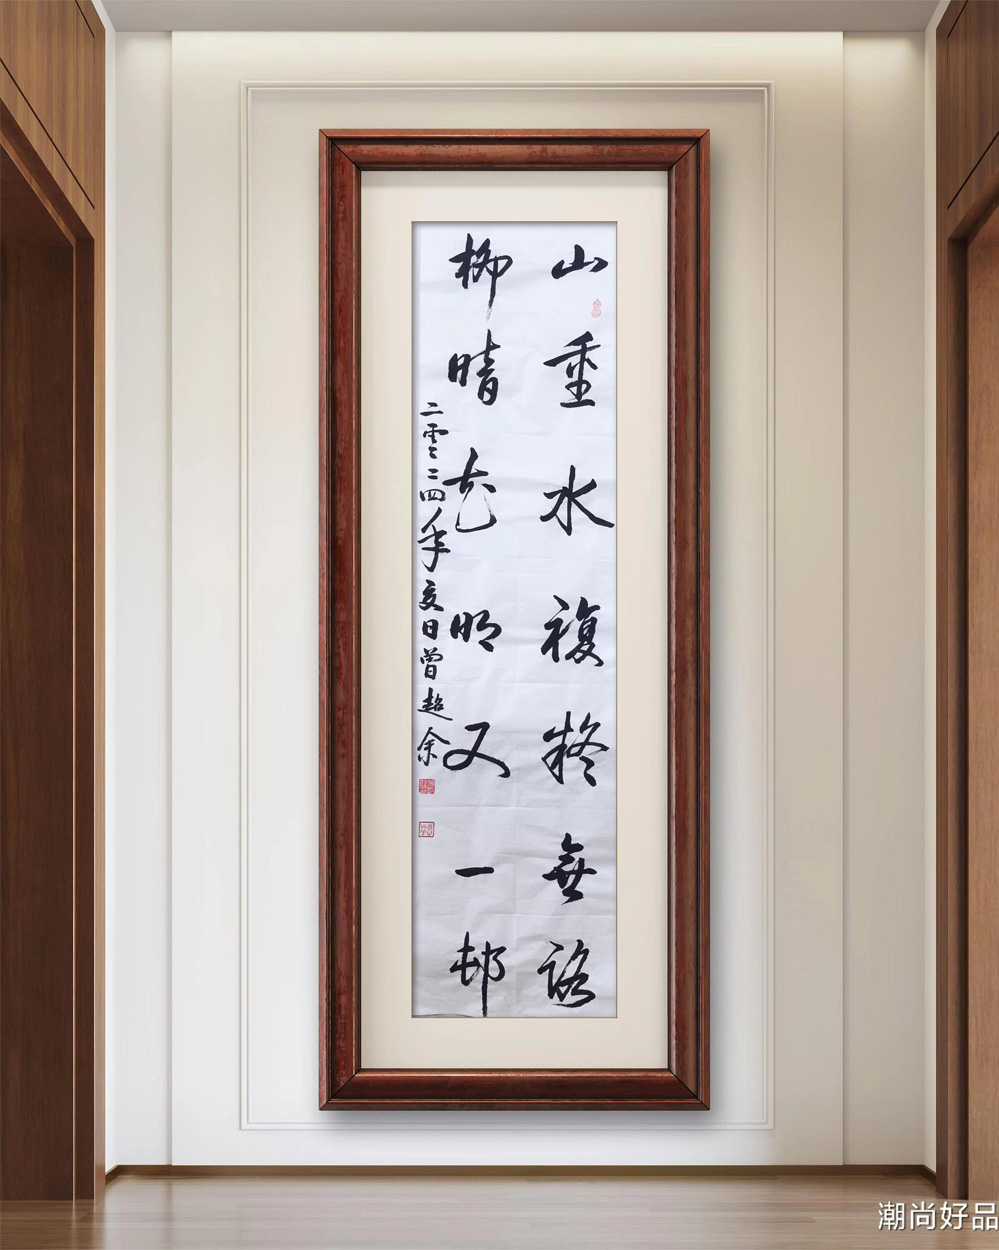 山重水複疑無路
柳晴花明又一邨
二零二四年夏日曾超余
潮尚好品